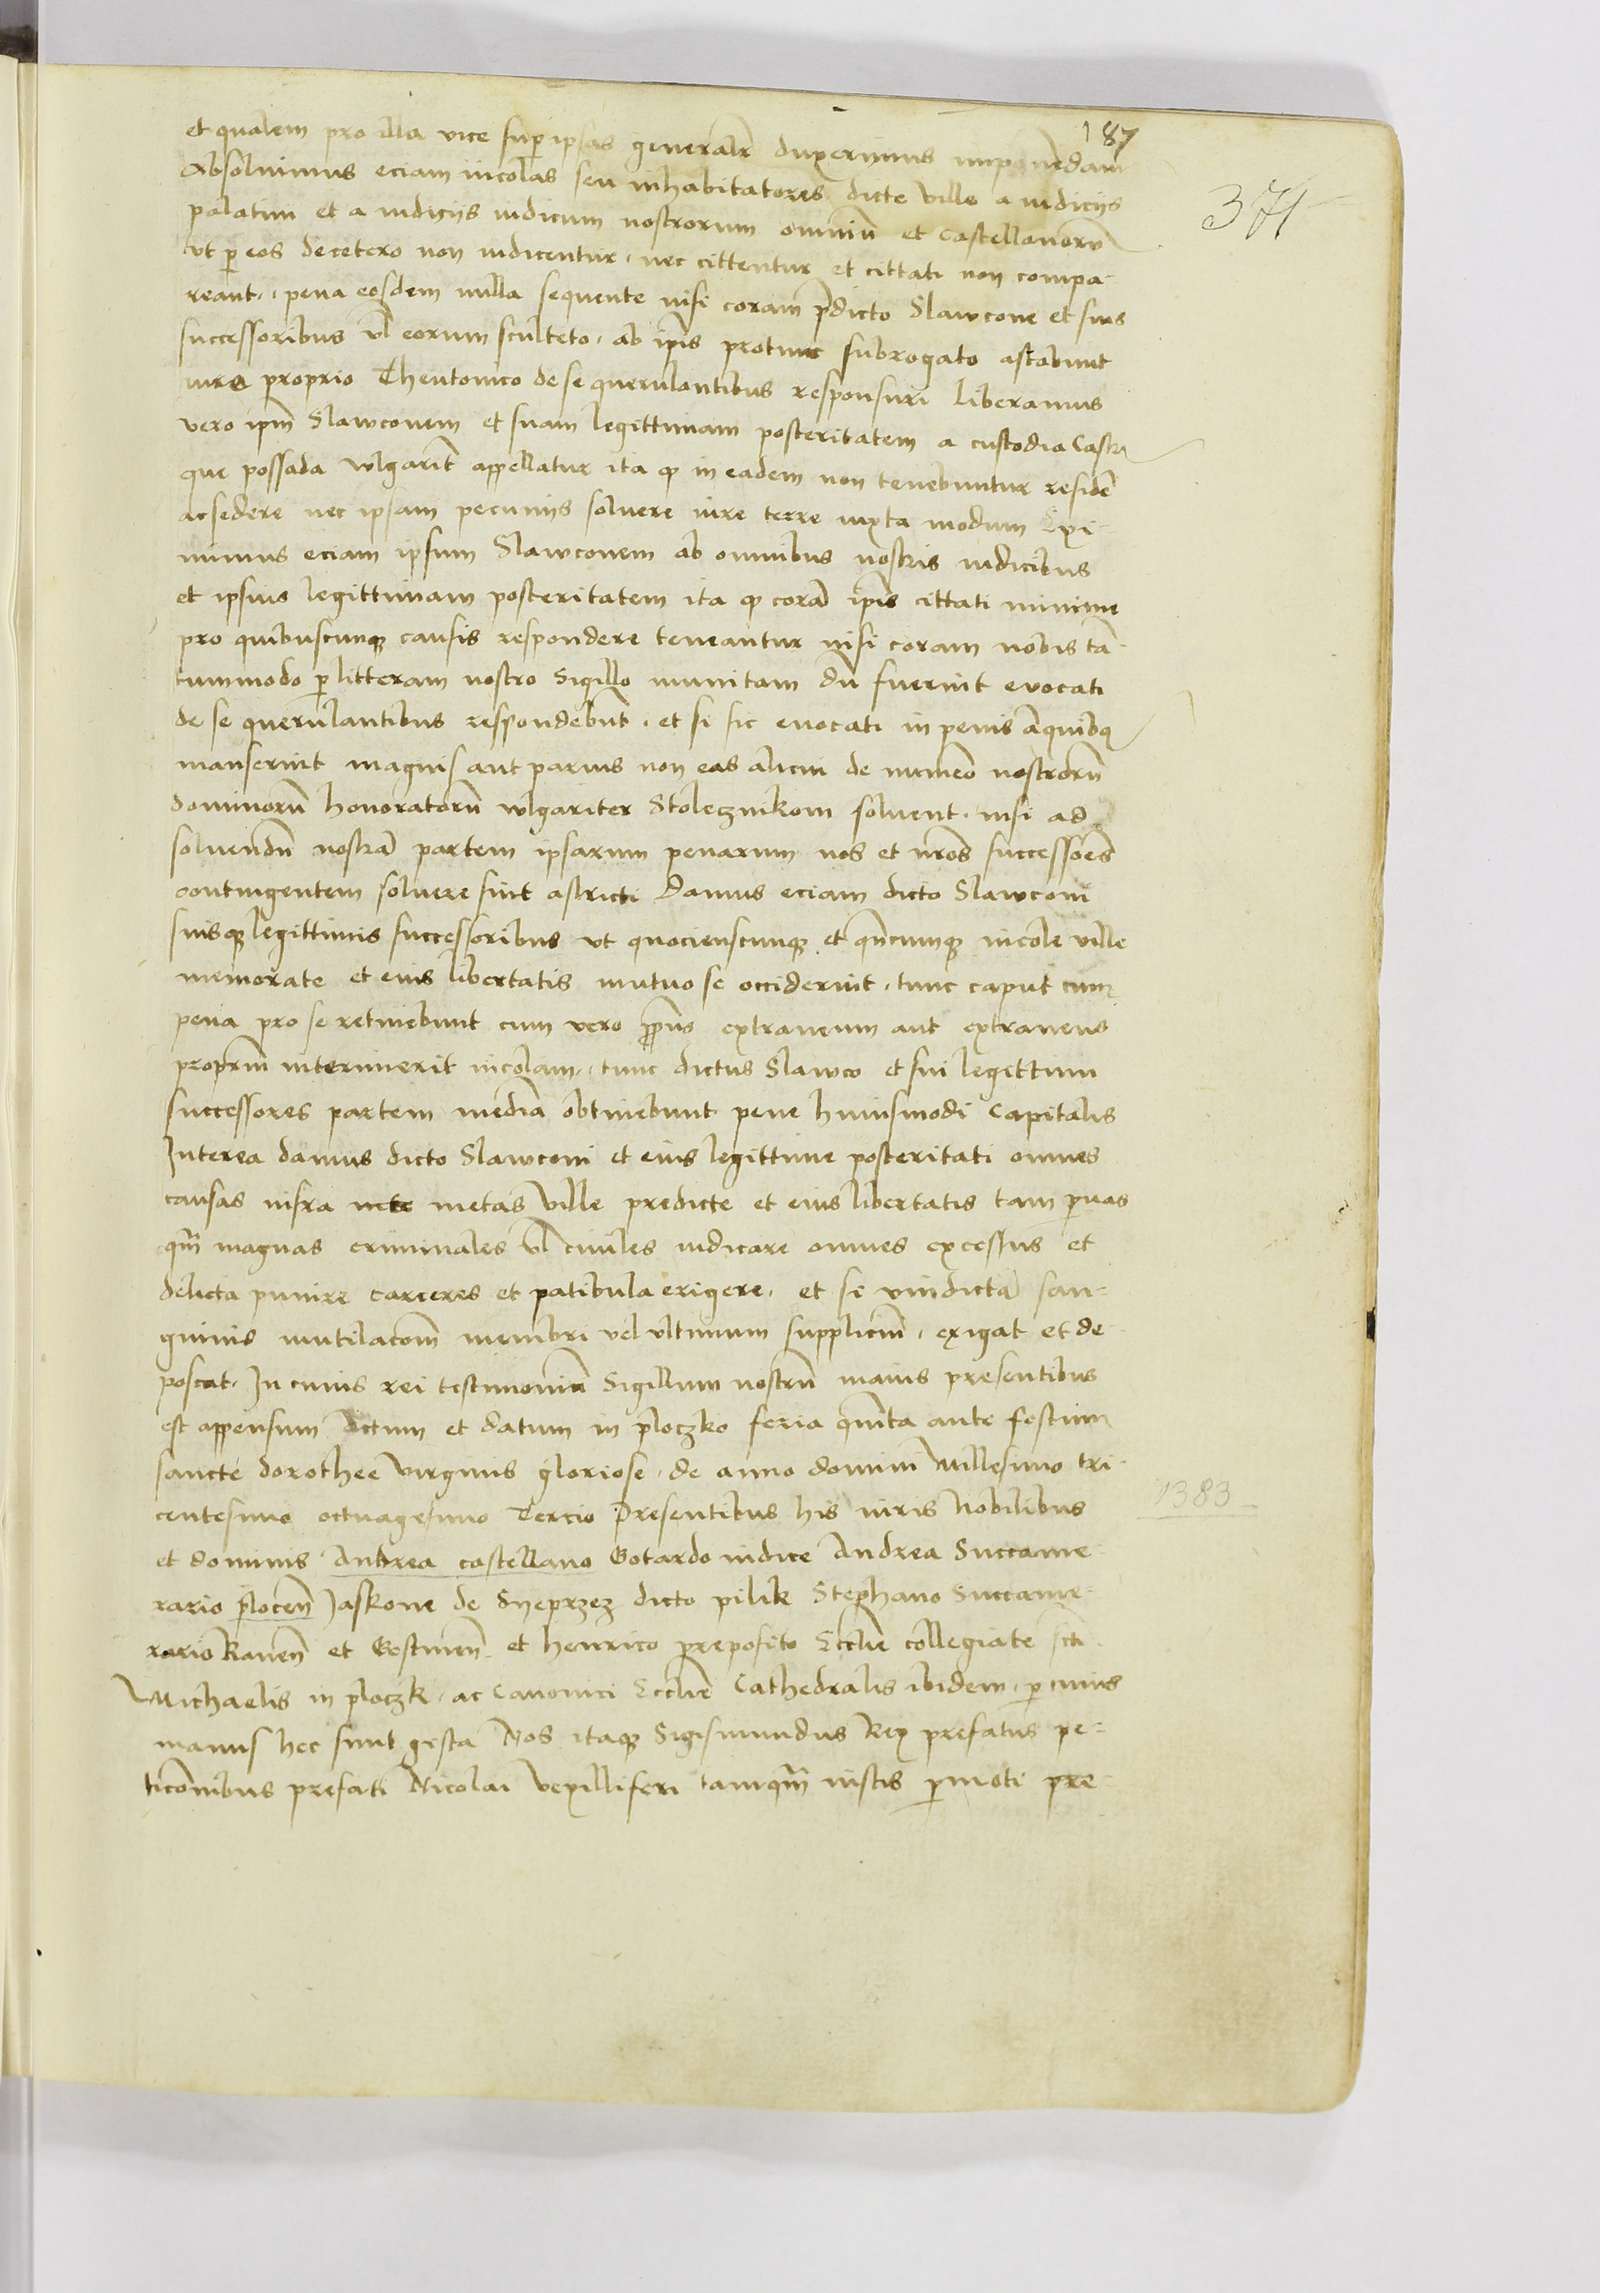 187
371
et qualem pro illa vice sup ipsas generalr duxerimus imponēdam
Absoluimus eciam incolas seu inhabitatores dicte ville a iudicijs
palatini et a iudicijs iudicum nostrorum omniū et castellanorū
vt p eos decetero non iudicentur, nec cittentur et cittati non compa-
reant, pena eosdem nulla sequente nisi coram pdicto Slawcone et suis
successoribus vl eorum sculteto, ab ipīs protunc subrogato astabunt
iure proprio Theutonico de se querulantibus responsuri Liberamus
vero ipm̄ Slawconem et suam legittimam posteritatem a custodia Castri
que possada wlgarit appellatur ita q in eadem non tenebuntur residē
ac sedere nec ipsam pecunijs soluere iure terre iuxta modum Exi-
mimus eciam ipsum Slawconem ab omnibus nostris iudicibus
et ipsius legittimam posteritatem ita q corā ipīs cittati minime
pro quibuscunq causis respondere teneantur nisi coram nobis tā-
tummodo p litteram nostro Sigillo munitam dū fuerint evocati
de se querulantibus respondebūt, et si sic euocati in penis aliquibq
manserint magnis aut paruis non eas alicui de numero nostrorū
dominorū honoratorū wlgariter Stolecznikom soluent, nisi ad
soluendū nostrā partem ipsarum penarum nos et nr̄os successōes
contingentem soluere sint astricti Damus eciam dicto Slawconi
suisq legittimis successoribus vt quocienscunq et qn̄cumq incole ville
memorate et eius libertatis mutuo se occiderint, tunc caput cum
pena pro se retinebunt cum vero pprius extraneum aut extraneus
propriū interimerit incolam, tunc dictus Slawco et sui legittimi
successores partem mediā obtinebunt pene huiusmodi Capitalis
Interea damus dicto Slawconi et eius legittime posteritati omnes
causas infra mete metas ville predicte et eius libertatis tam puas
qm̄ magnas criminales vl ciuiles iudicare omnes excessus et
delicta punire carceres et patibula erigere, et si vindictā san-
guinis mutilacōm membri vel vltimum suppliciū, exigat et de-
poscat, In cuius rei testimoniū Sigillum nostrū maius presentibus
est appensum Actum et datum in ploczko feria quīta ante festum
sancte dorothee virginis gloriose, de anno domini Millesimo tri-
centesimo octuagesimo Tercio Presentibus his viris Nobilibus
1383
et dominis Andrea castellano Gotardo iudice Andrea Succame-
rario plocen̄ Jaskone de Sneprzez dicto pilik Stephano Succame-
rario Raven̄ et Gostinen̄ et henrico preposito Ecclie collegiate scti
Michaelis in ploczk, ac Canonici Ecclie Cathedralis ibidem, p cuius
manus hec sunt gesta Nos itaq Sigismundus Rex prefatus pe-
ticōnibus prefati Nicolai vexilliferi tamqm̄ iustis pmoti pre-